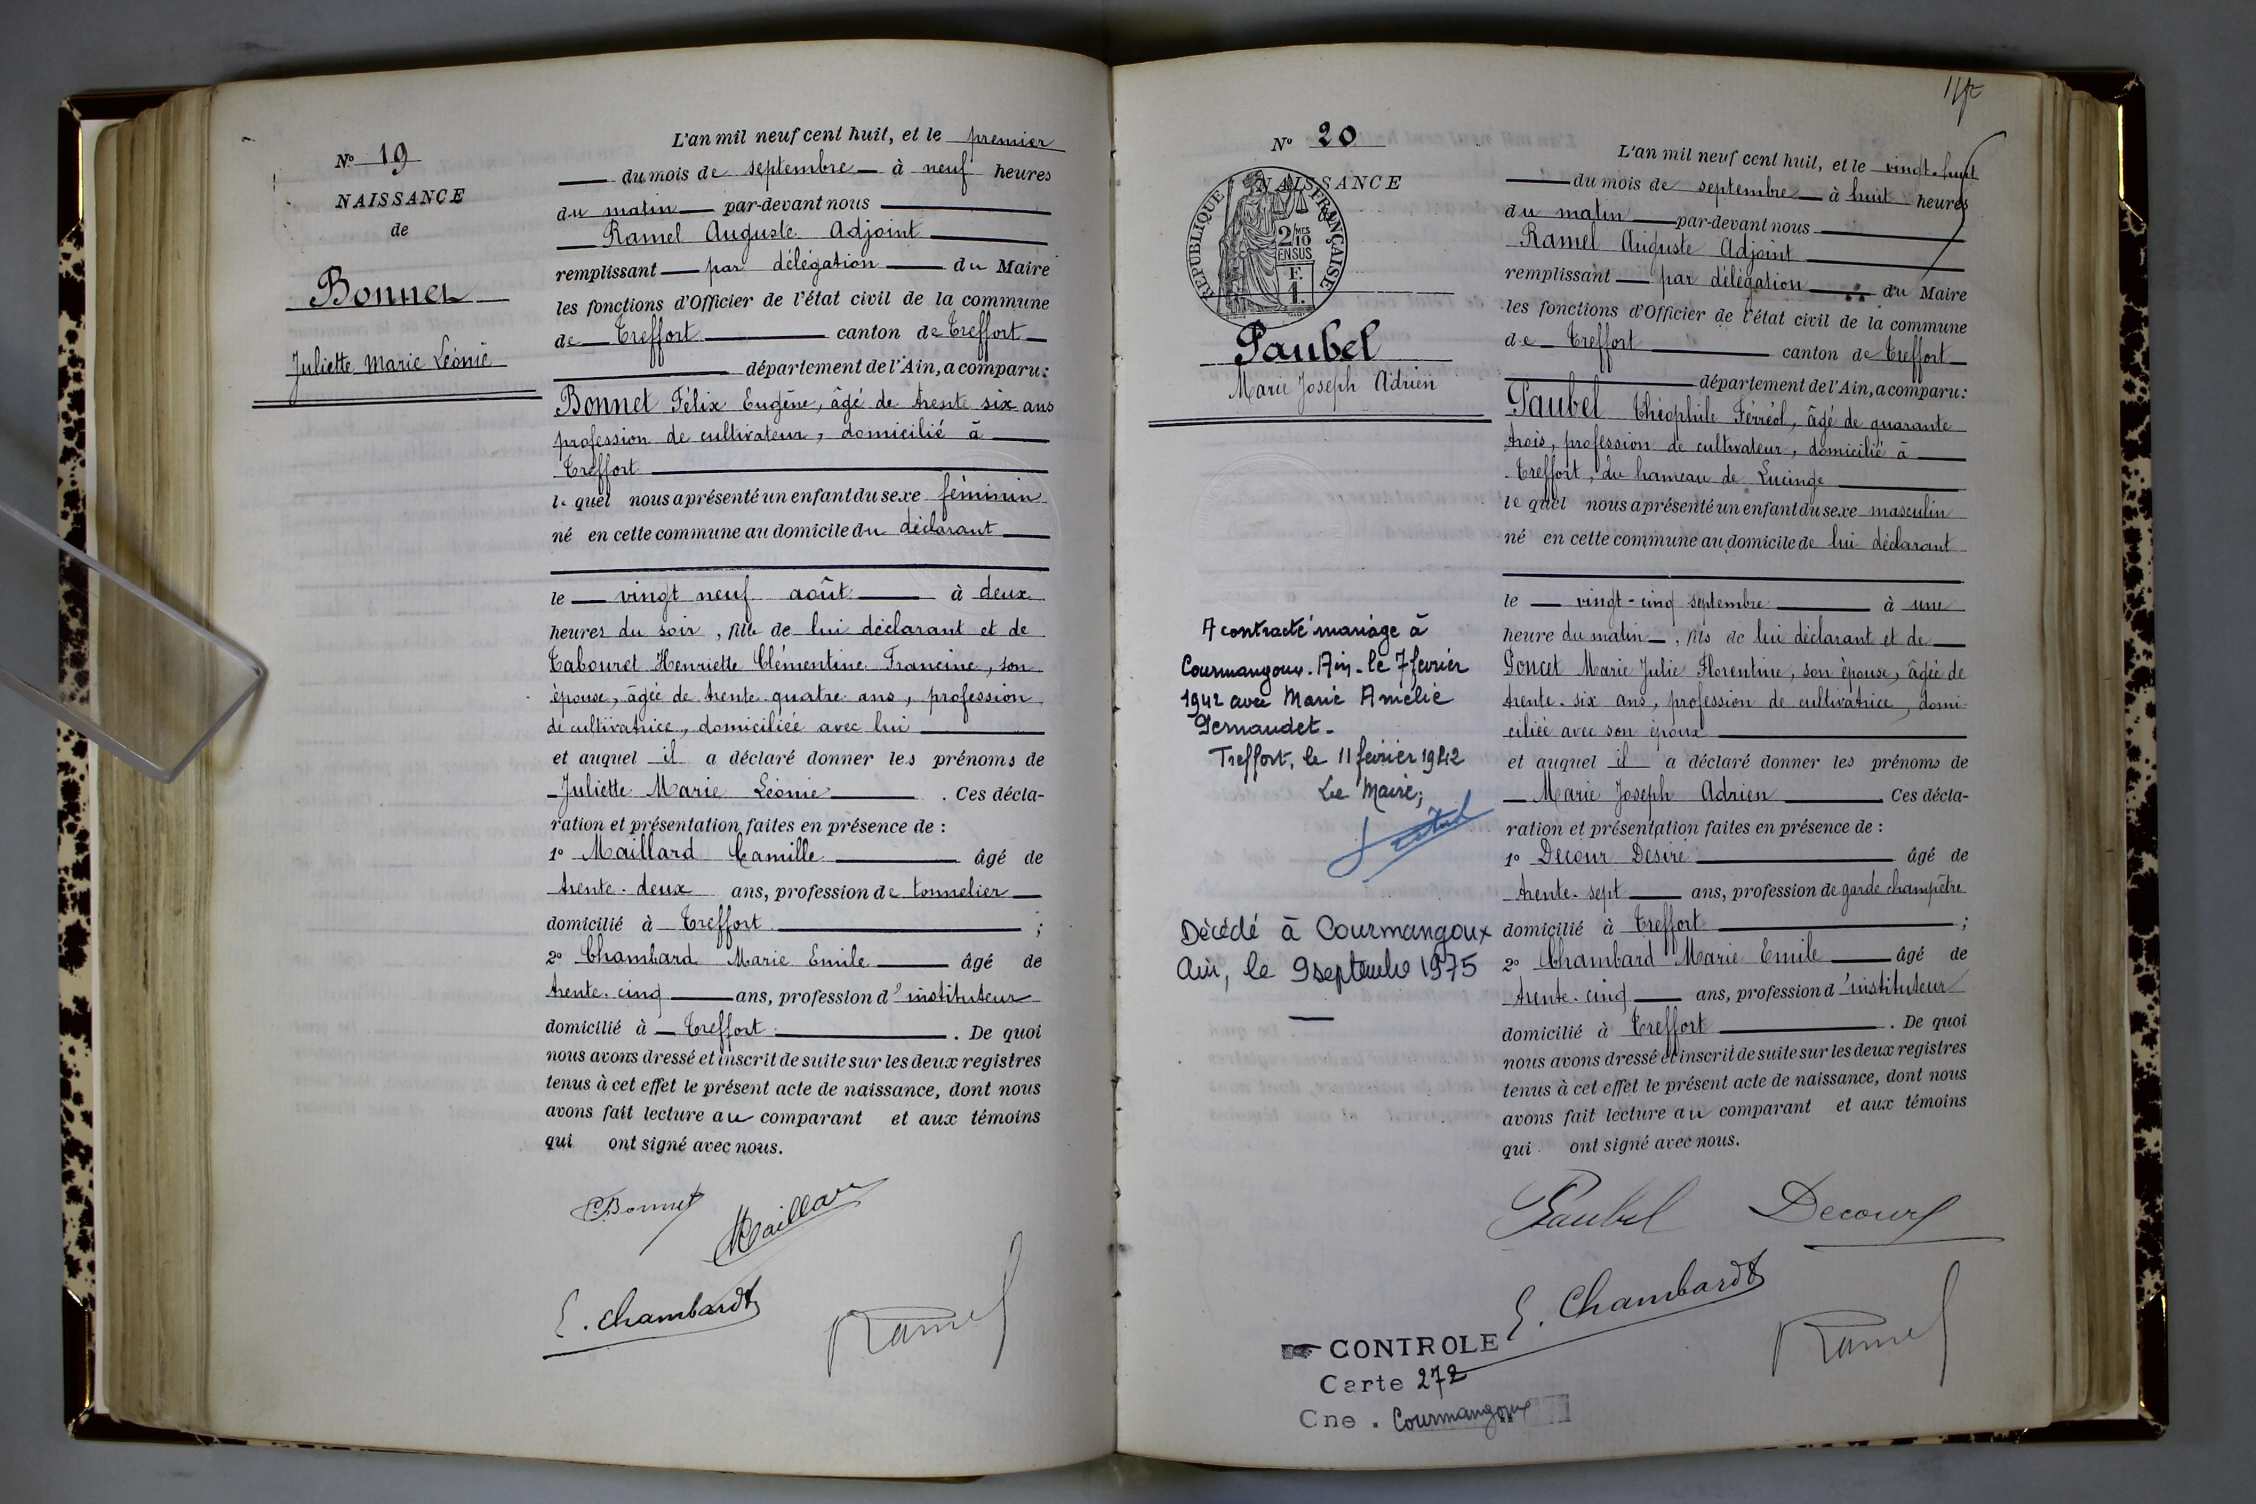 N° 19
NAISSANCE
de
Bonnet
Juliette Marie Léonie
L'an mil neuf cent huit, et le premier
du mois de septembre à neuf heures
du matin par-devant nous
Ramel Auguste Adjoint
remplissant par délégation du Maire
les fonctions d'Officier de l'état civil de la commune
de Treffort canton de Treffort
département de l'Ain, a comparu :
Bonnet Félix Eugène, âgé de trente six ans
profession de cultivateur, domicilié à
Treffort
le quel nous a présenté un enfant du sexe féminin
né en cette commune au domicile du déclarant
le vingt neuf août à deux
heures du soir, fille de lui déclarant et de
Tabouret Henriette Clémentine Francine, son
épouse, âgée de trente quatre ans, profession
de cultivatrice, domiciliée avec lui
et auquel il a déclaré donner les prénoms de
Juliette Marie Léonie . Ces décla-
ration et présentation faites en présence de :
1° Maillard Camille âgé de
trente-deux ans, profession de tonnelier
domicilié à Treffort ;
2° Chambard Marie Emile âgé de
trente-cinq ans, profession d'instituteur
domicilié à Treffort . De quoi
nous avons dressé et inscrit de suite sur les deux registres
tenus à cet effet le présent acte de naissance, dont nous
avons fait lecture au comparant et aux témoins
qui ont signé avec nous.
Bonnet
Maillard
E. Chambard
Ramel
N° 20
NAISSANCE
RÉPUBLIQUE FRANÇAISE
2/10 MES
EN SUS
F.
1.
Paubel
Marie Joseph Adrien
A contracté mariage à
Courmangoux. Ain. le 7 février
1942 avec Marie Amélie
Pernaudet.
Treffort, le 11 février 1942
Le Maire;
Décédé à Courmangoux
Ain, le 9 septembre 1975
L'an mil neuf cent huit, et le vingt-huit
du mois de septembre à huit heures
du matin par-devant nous
Ramel Auguste Adjoint
remplissant par délégation du Maire
les fonctions d'Officier de l'état civil de la commune
de Treffort canton de Treffort
département de l'Ain, a comparu :
Paubel Théophile Férréol, âgé de quarante
trois, profession de cultivateur, domicilié à
Treffort, du hameau de Lucinge
le quel nous a présenté un enfant du sexe masculin
né en cette commune au domicile de lui déclarant
le vingt-cinq septembre à une
heure du matin, fils de lui déclarant et de
Poncet Marie Julie Florentine, son épouse, âgée de
trente-six ans, profession de cultivatrice, domi-
ciliée avec son époux
et auquel il a déclaré donner les prénoms de
Marie Joseph Adrien Ces décla-
ration et présentation faites en présence de :
1° Decour Désiré âgé de
trente-sept ans, profession de garde champêtre
domicilié à Treffort ;
2° Chambard Marie Emile âgé de
trente-cinq ans, profession d'instituteur
domicilié à Treffort . De quoi
nous avons dressé et inscrit de suite sur les deux registres
tenus à cet effet le présent acte de naissance, dont nous
avons fait lecture au comparant et aux témoins
qui ont signé avec nous.
Paubel
Decour
E. Chambard
Ramel
CONTROLE
Carte 272
Cne . Courmangoux